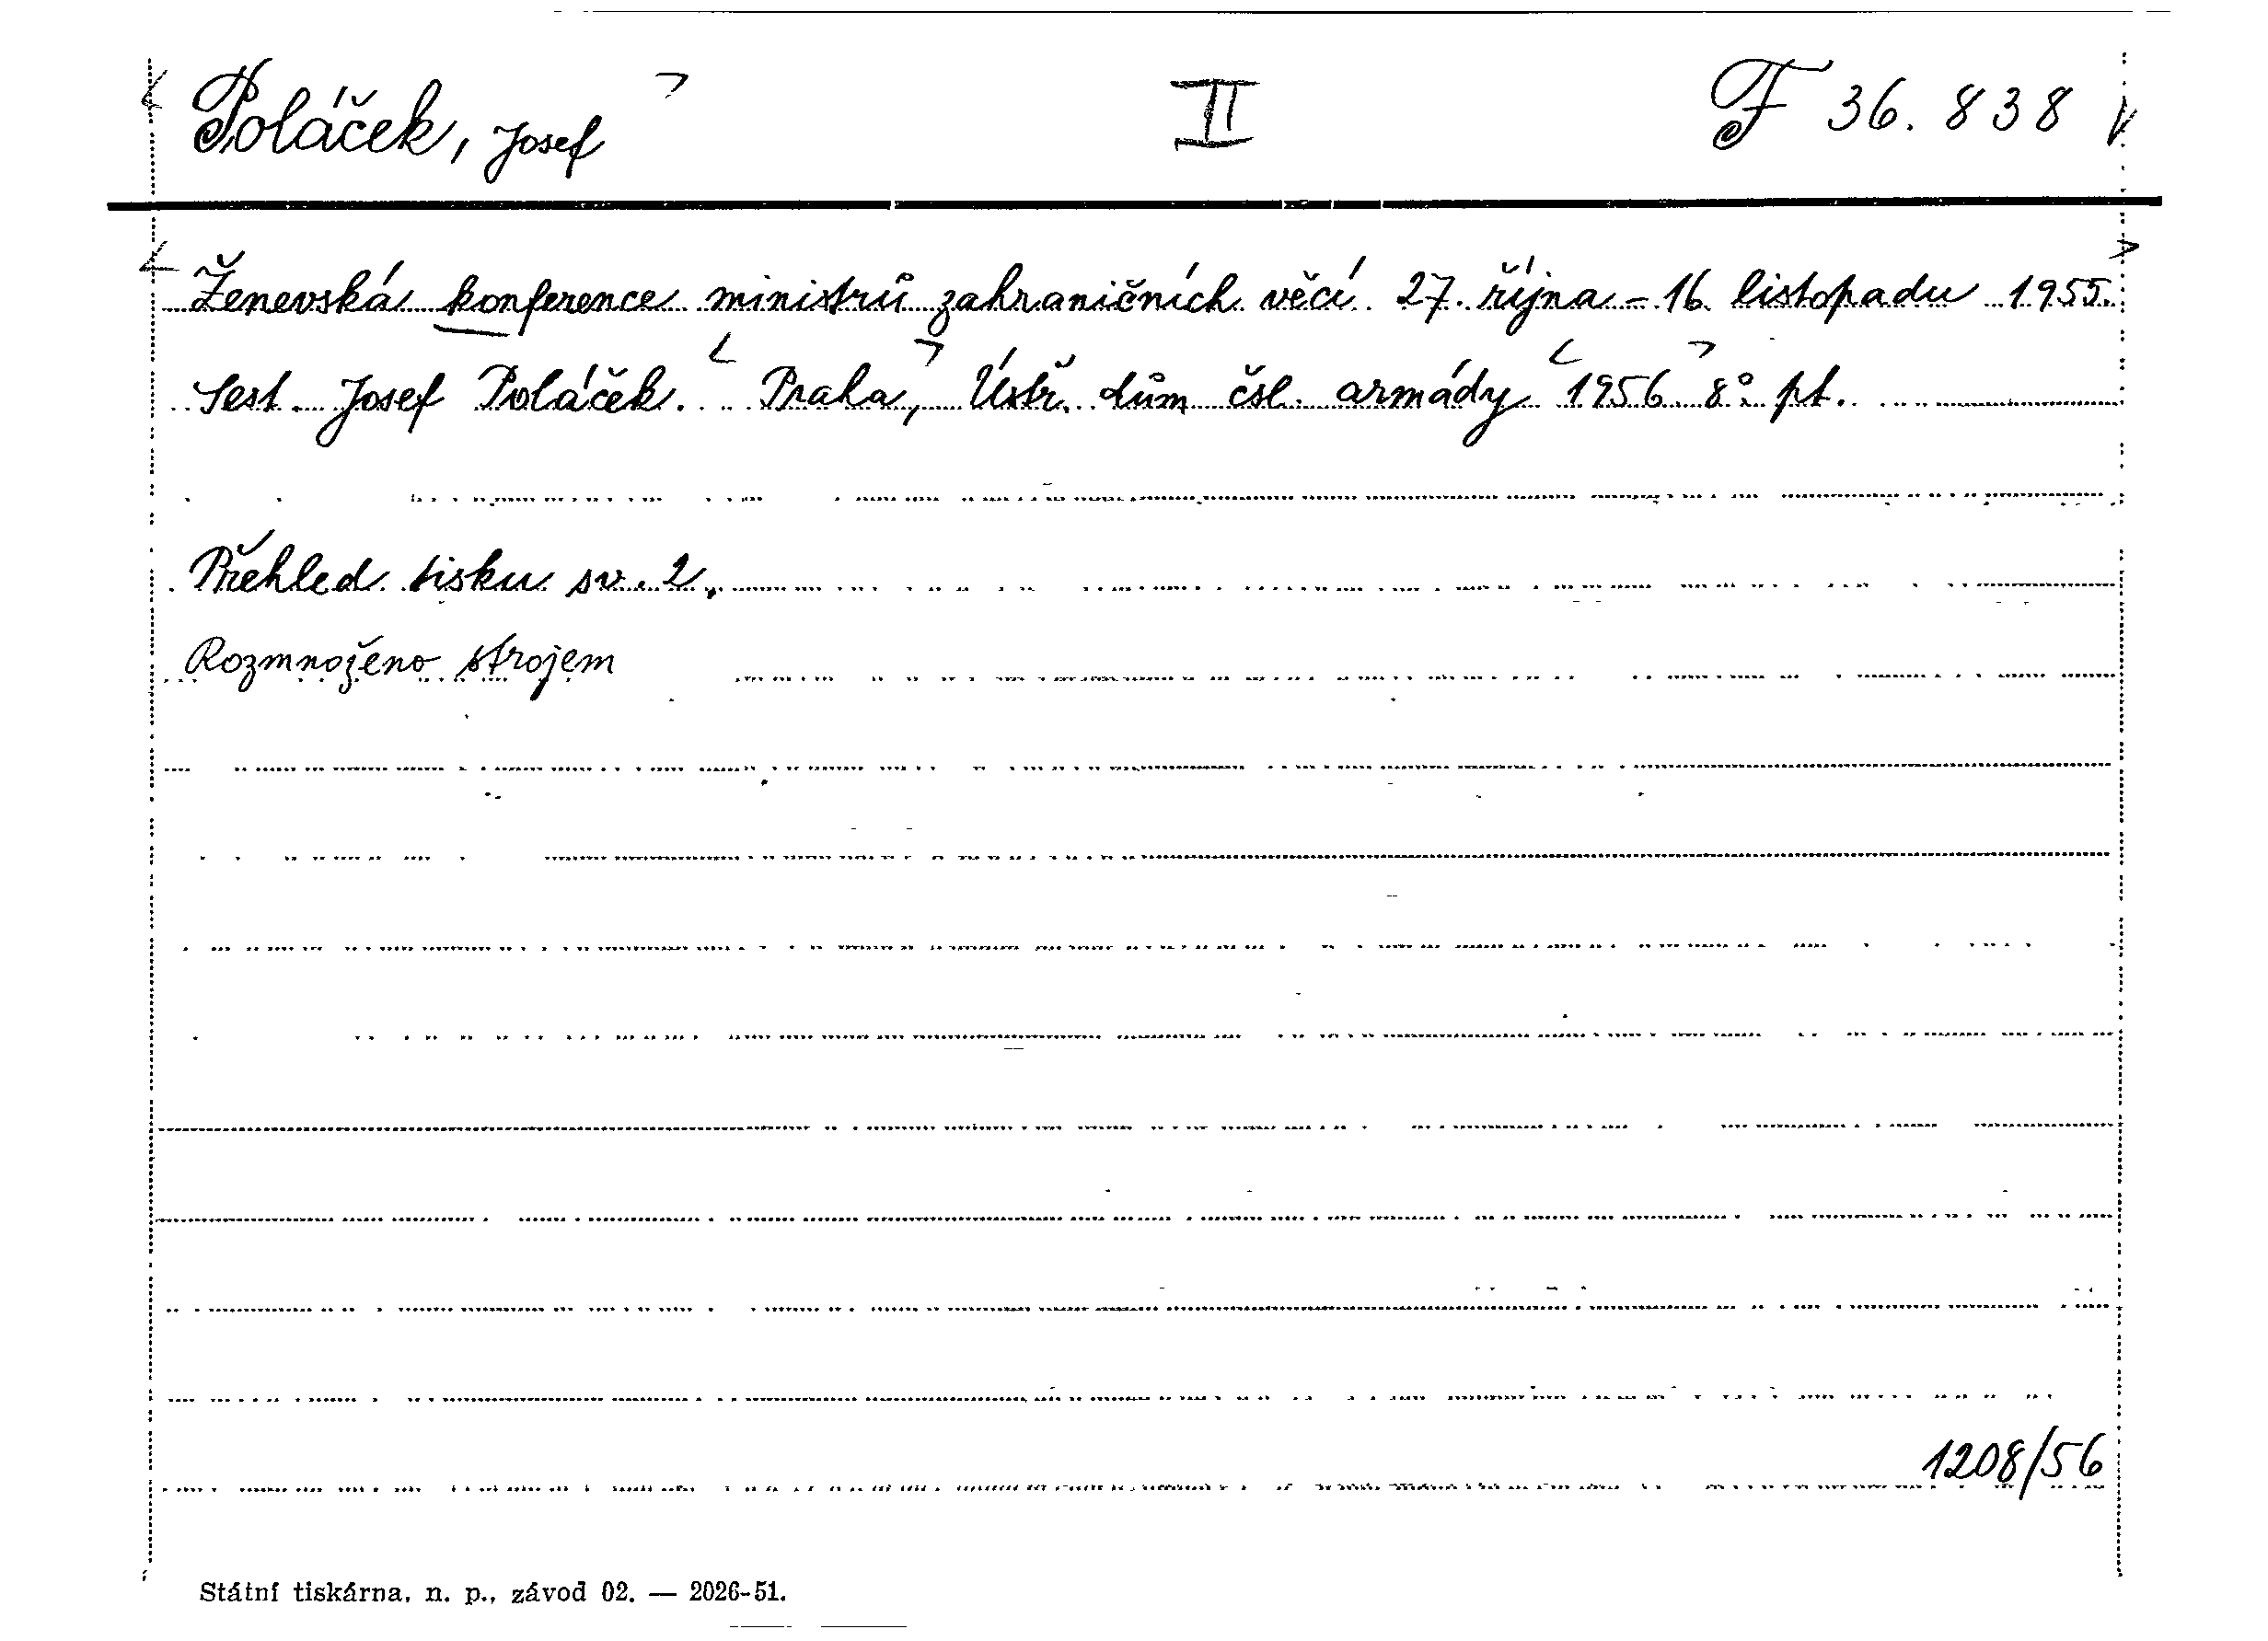 Poláček, Josef II F 36.838
Ženevská konference ministrů zahraničních věcí 27. října - 16. listopadu 1955.
Sest. Josef Poláček. Praha, Ústř. dům čsl. armády 1956 8° pt.
Přehled tisku sv. 2.
Rozmnoženo strojem
1208/56
Státní tiskárna, n. p., závod 02. — 2026-51.